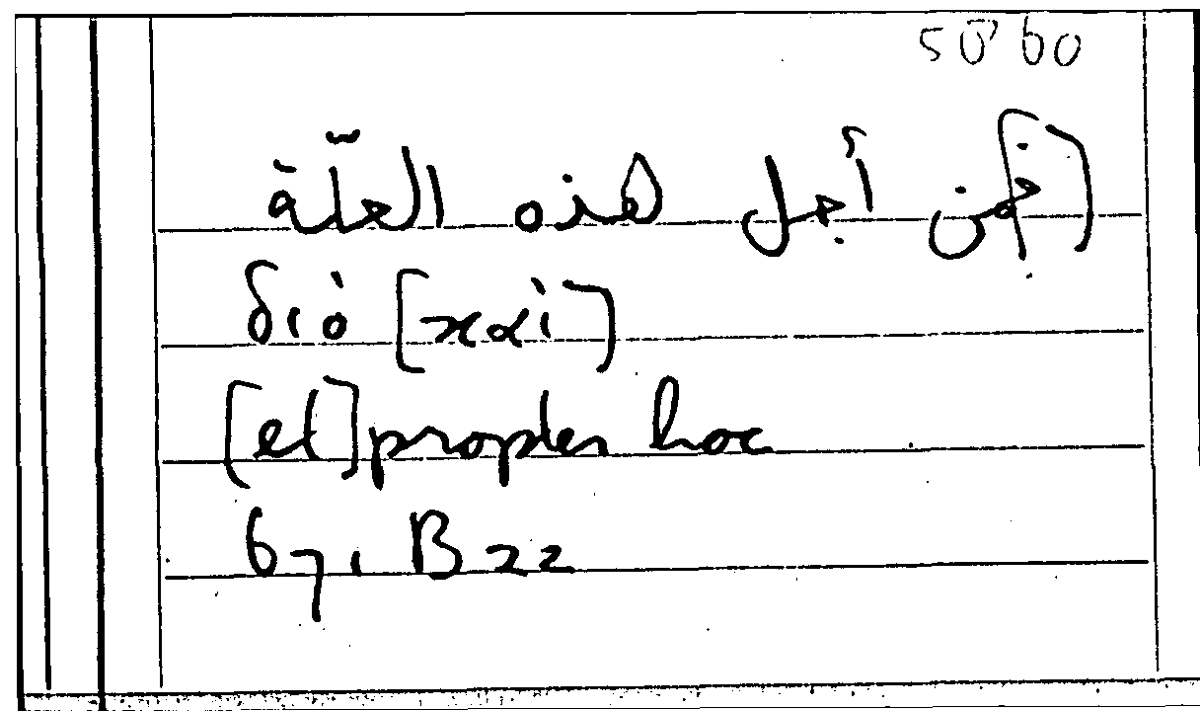 50 60
[فمن] أجل هذه العلّة
διὸ [καὶ]
[et] propter hoc
671 B 22